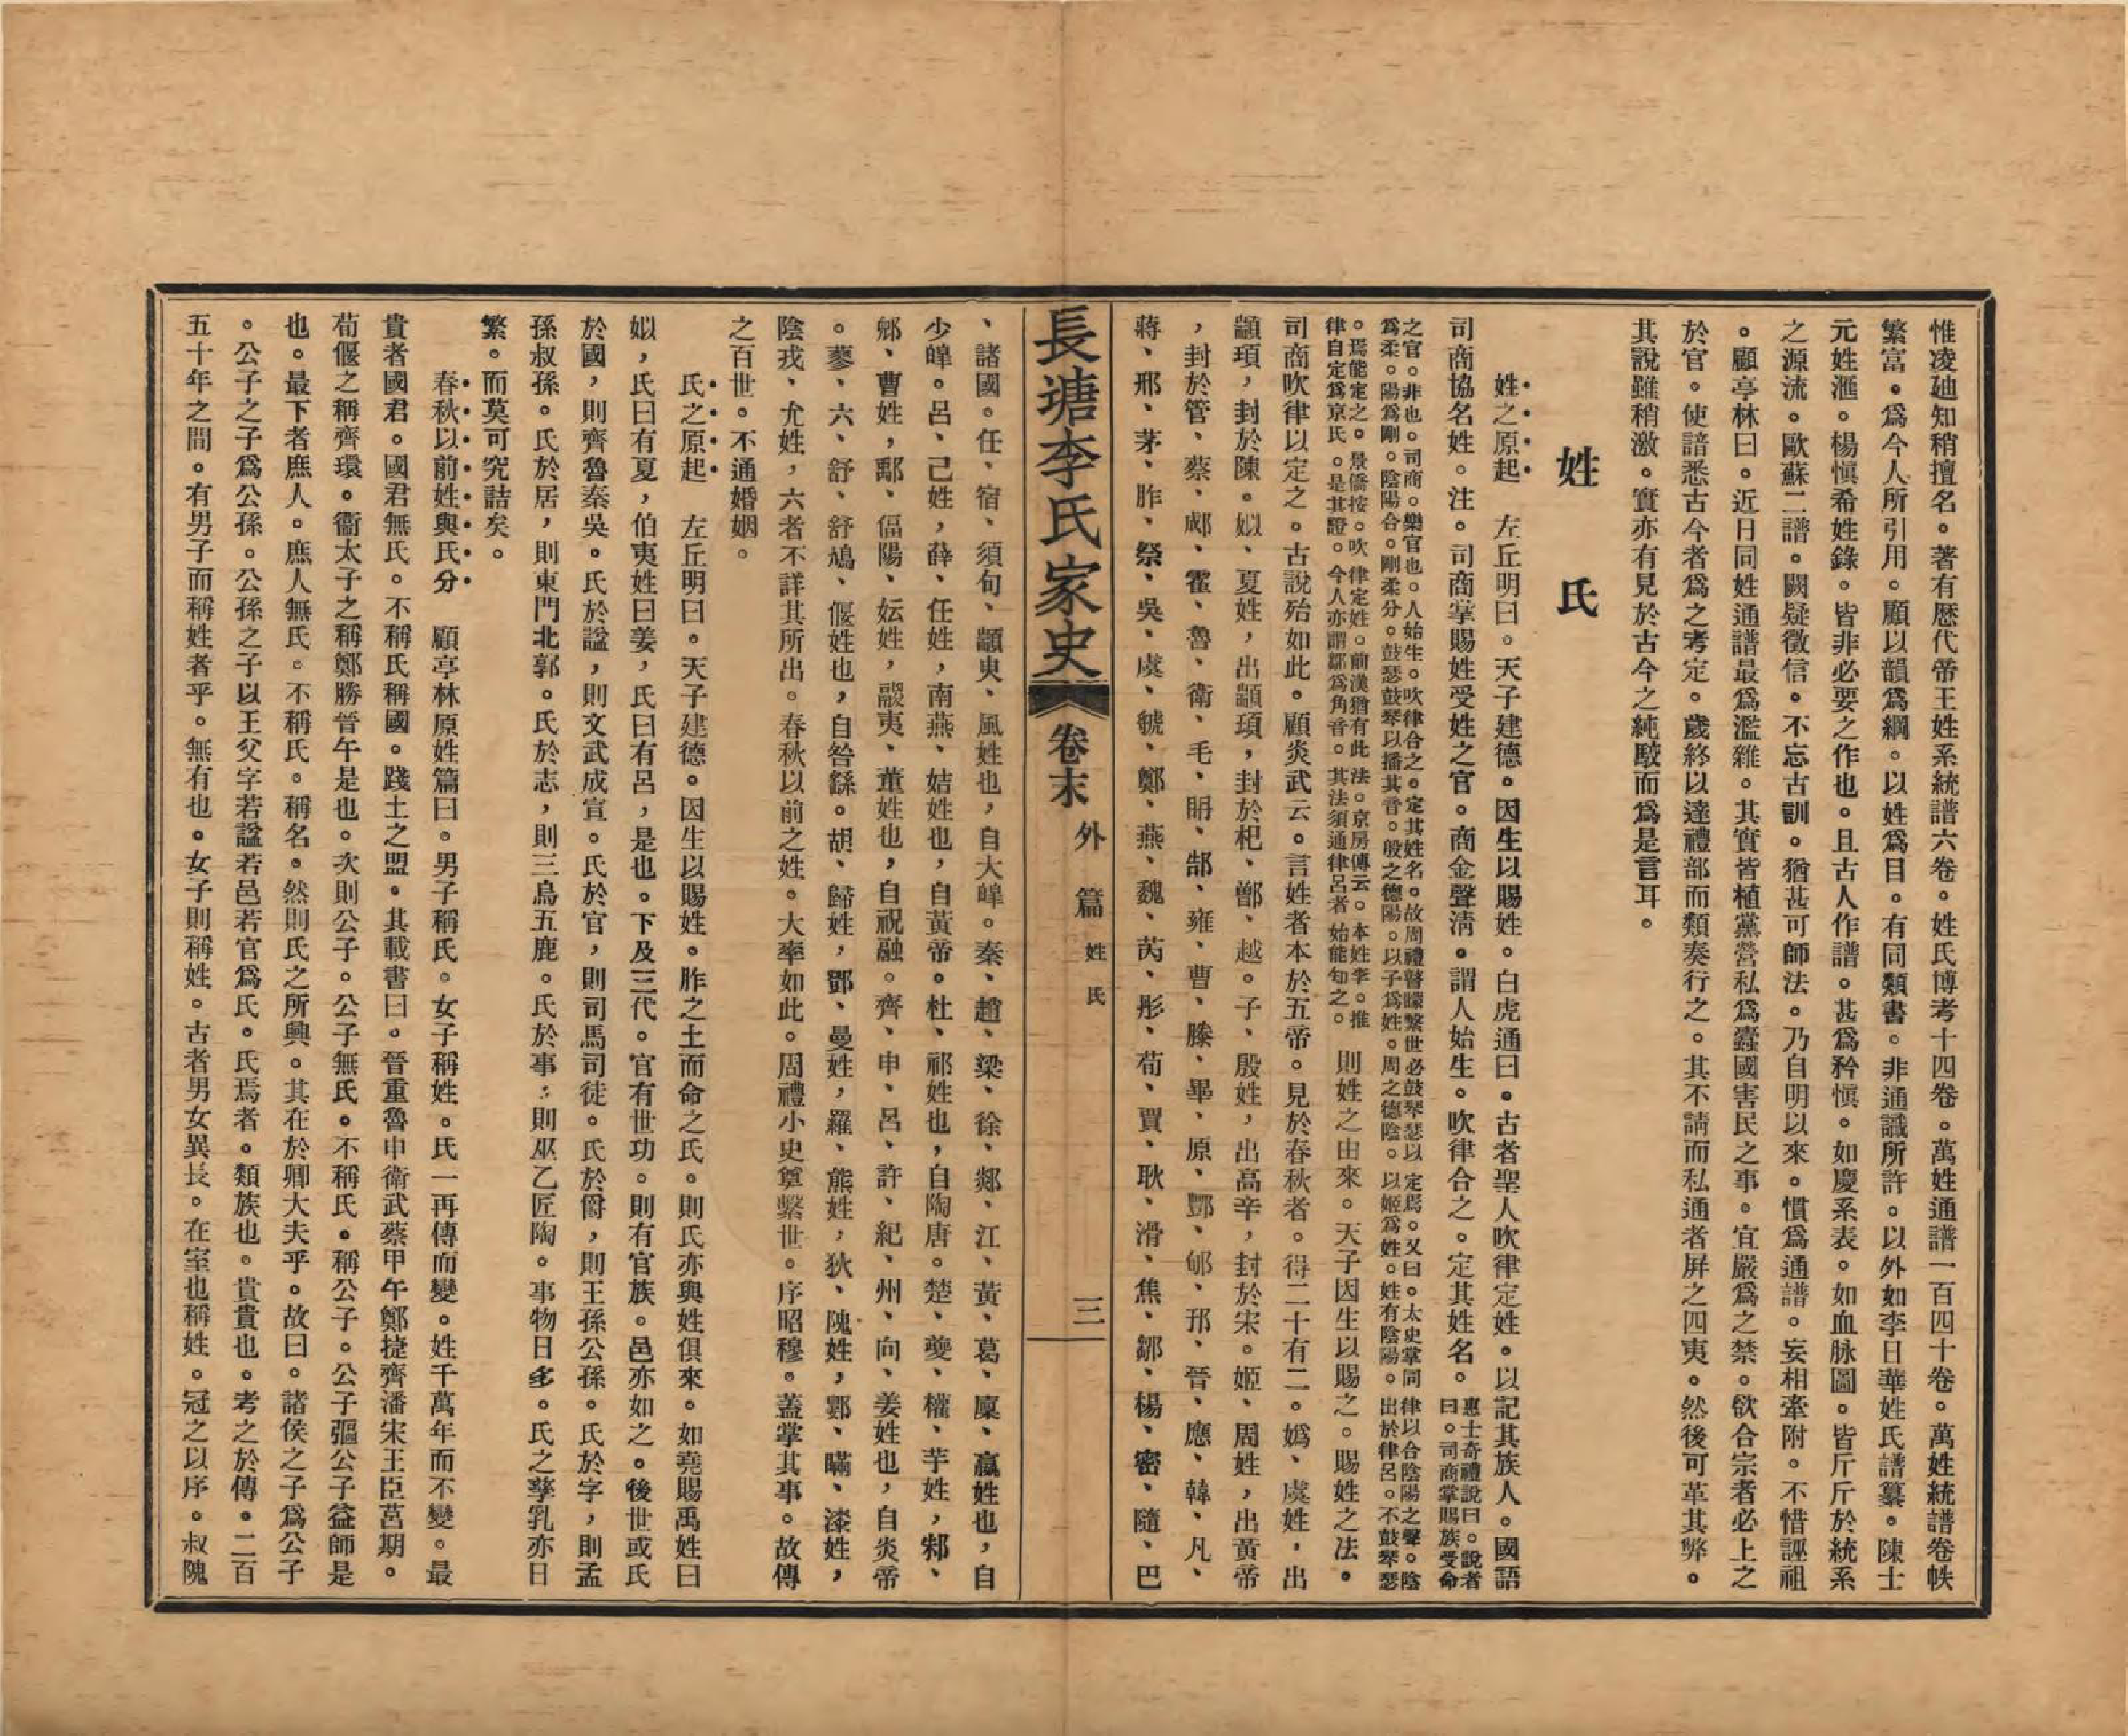 惟凌廸知稍擅名。著有歷代帝王姓系統譜六卷。姓氏博考十四卷。萬姓通譜一百四十卷。萬姓統譜卷帙
繁富。爲今人所引用。顧以韻爲綱。以姓爲目。有同類書。非通識所許。以外如李日華姓氏譜纂。陳士
元姓滙。楊愼希姓錄。皆非必要之作也。且古人作譜。甚爲矜愼。如慶系表。如血脉圖。皆斤斤於統系
之源流。歐蘇二譜。闕疑徵信。不忘古訓。猶甚可師法。乃自明以來。慣爲通譜。妄相牽附。不惜誣祖
。顧亭林曰。近日同姓通譜最爲濫雜。其實皆植黨營私爲蠹國害民之事。宜嚴爲之禁。欲合宗者必上之
於官。使諳悉古今者爲之考定。歲終以達禮部而類奏行之。其不請而私通者屏之四夷。然後可革其弊。
其說雖稍激。實亦有見於古今之純駁而爲是言耳。
姓氏
姓之原起　左丘明曰。天子建德。因生以賜姓。白虎通曰。古者聖人吹律定姓。以記其族人。國語
司商協名姓。注。司商掌賜姓受姓之官。商金聲淸。謂人始生。吹律合之。定其姓名。惠士奇禮說曰。說者
曰。司商掌賜族受命
之官。非也。司商。樂官也。人始生。吹律合之。定其姓名。故周禮瞽矇繫世必鼓琴瑟以定焉。又曰。太史掌同律以合陰陽之聲。陰
爲柔。陽爲剛。陰陽合。剛柔分。鼓瑟鼓琴以播其音。殷之德陽。以子爲姓。周之德陰。以姬爲姓。姓有陰陽。出於律呂。不鼓琴瑟
。焉能定之。景僑按。吹律定姓。前漢猶有此法。京房傳云。本姓李。推
律自定爲京氏。是其證。今人亦謂鄒爲角音。其法須通律呂者始能知之。
則姓之由來。天子因生以賜之。賜姓之法。
司商吹律以定之。古說殆如此。顧炎武云。言姓者本於五帝。見於春秋者。得二十有二。嬀、虞姓，出
顓頊，封於陳。姒、夏姓，出顓頊，封於杞、鄫、越。子、殷姓，出高辛，封於宋。姬、周姓，出黃帝
，封於管、蔡、郕、霍、魯、衛、毛、聃、郜、雍、曹、滕、畢、原、酆、郇、邘、晉、應、韓、凡、
蔣、邢、茅、胙、祭、吳、虞、虢、鄭、燕、魏、芮、彤、荀、賈、耿、滑、焦、鄒、楊、密、隨、巴
長塘李氏家史　卷末　外篇　姓氏　三
、諸國。任、宿、須句、顓臾、風姓也，自大皡。秦、趙、梁、徐、郯、江、黃、葛、麇、嬴姓也，自
少皡。呂、己姓，薛、任姓，南燕、姞姓也，自黃帝。杜、祁姓也，自陶唐。楚、夔、權、芈姓，邾、
郳、曹姓，鄅、偪陽、妘姓，鬷夷、董姓也，自祝融。齊、申、呂、許、紀、州、向、姜姓也，自炎帝
。蓼、六、舒、舒鳩、偃姓也，自咎繇。胡、歸姓，鄧、曼姓，羅、熊姓，狄、隗姓，鄋、瞞、漆姓，
陰戎、允姓，六者不詳其所出。春秋以前之姓。大率如此。周禮小史奠繫世。序昭穆。蓋掌其事。故傳
之百世。不通婚姻。
氏之原起　左丘明曰。天子建德。因生以賜姓。胙之土而命之氏。則氏亦與姓俱來。如堯賜禹姓曰
姒，氏曰有夏，伯夷姓曰姜，氏曰有呂，是也。下及三代。官有世功。則有官族。邑亦如之。後世或氏
於國，則齊魯秦吳。氏於諡，則文武成宣。氏於官，則司馬司徒。氏於爵，則王孫公孫。氏於字，則孟
孫叔孫。氏於居，則東門北郭。氏於志，則三烏五鹿。氏於事，則巫乙匠陶。事物日多。氏之孳乳亦日
繁。而莫可究詰矣。
春秋以前姓與氏分　顧亭林原姓篇曰。男子稱氏。女子稱姓。氏一再傳而變。姓千萬年而不變。最
貴者國君。國君無氏。不稱氏稱國。踐土之盟。其載書曰。晉重魯申衛武蔡甲午鄭捷齊潘宋王臣莒期。
荀偃之稱齊環。衞太子之稱鄭勝晉午是也。次則公子。公子無氏。不稱氏。稱公子。公子彄公子益師是
也。最下者庶人。庶人無氏。不稱氏。稱名。然則氏之所興。其在於卿大夫乎。故曰。諸侯之子爲公子
。公子之子爲公孫。公孫之子以王父字若諡若邑若官爲氏。氏焉者。類族也。貴貴也。考之於傳。二百
五十年之間。有男子而稱姓者乎。無有也。女子則稱姓。古者男女異長。在室也稱姓。冠之以序。叔隗